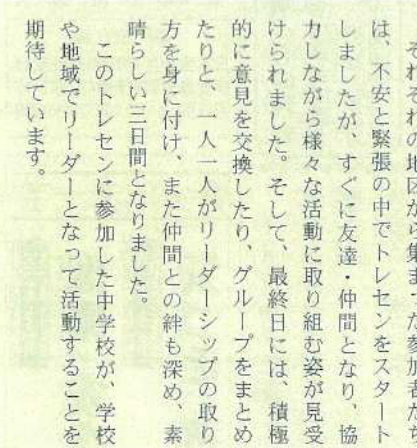 それぞれの地区から集まった参加者たち
は、不安と緊張の中でトレセンをスタート
しましたが、すぐに友達・仲間となり、協
力しながら様々な活動に取り組む姿が見受
けられました。そして、最終日には、積極
的に意見を交換したり、グループをまとめ
たりと、一人一人がリーダーシップの取り
方を身に付け、また仲間との絆も深め、素
晴らしい三日間となりました。
このトレセンに参加した中学校が、学校
や地域でリーダーとなって活動することを
期待しています。